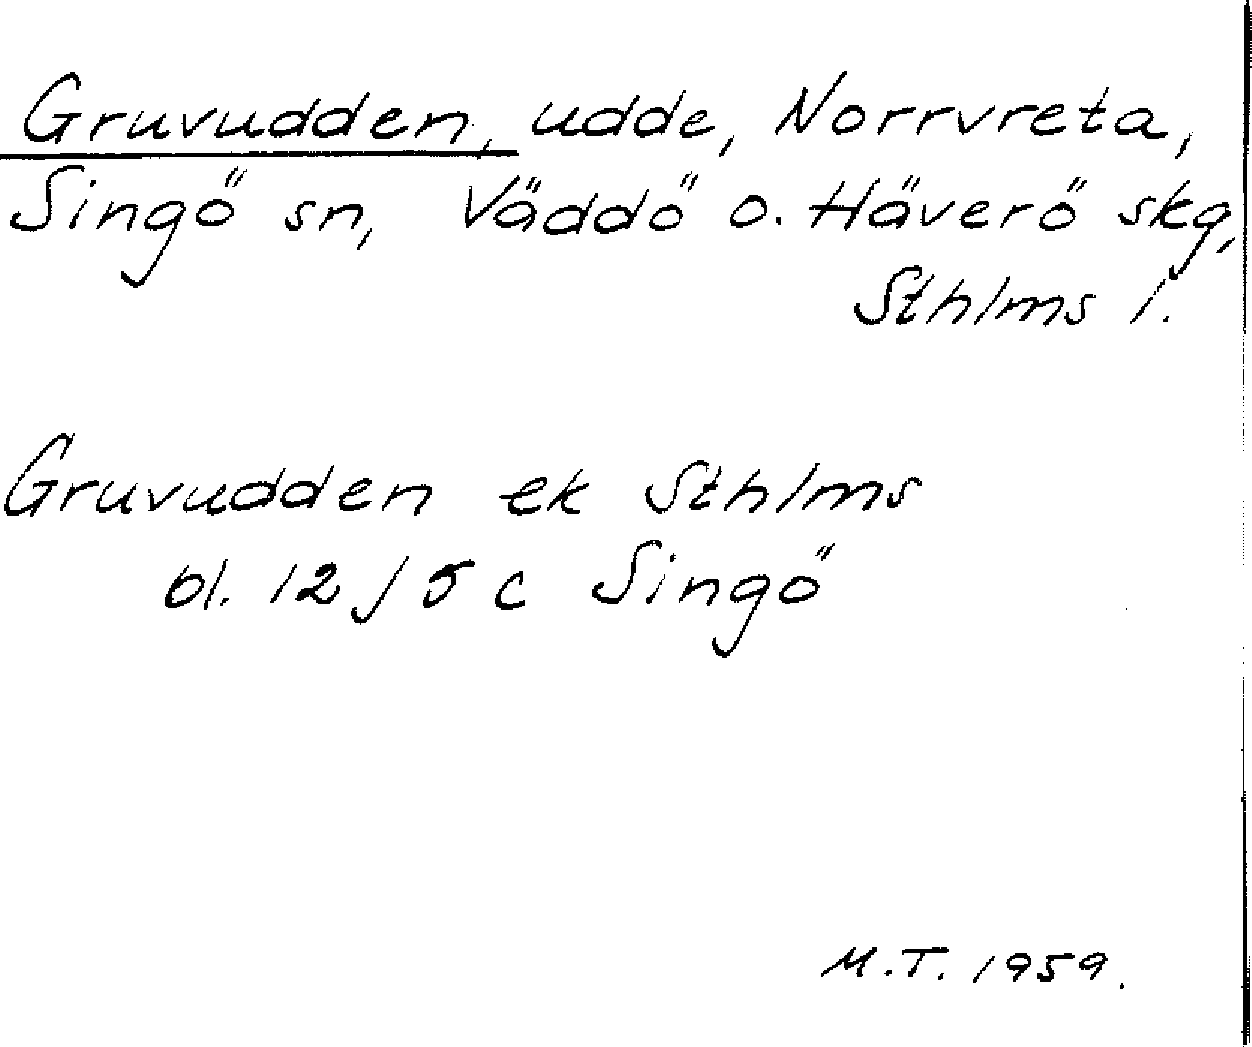 Gruvudden, udde, Norrvreta,
Singö sn, Väddö o. Häverö skg,
Sthlms l.
Gruvudden ek Sthlms
bl. 12 J 5 c Singö
M.T. 1959.